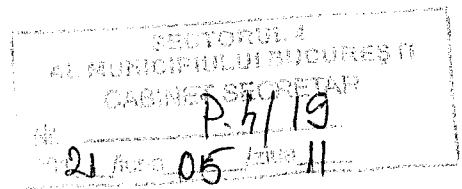 SECTORUL 4
AL MUNICIPIULUI BUCUREȘTI
CABINET SECRETAR
Nr. P.4/19
21 /luna 05 /ziua 11